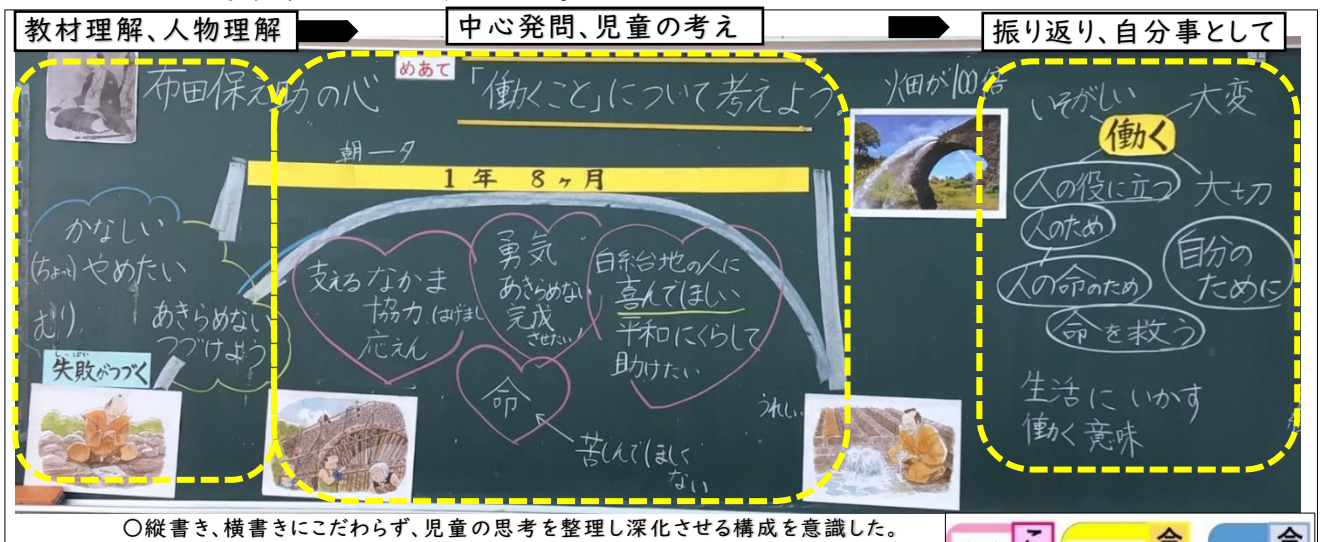 教材理解、人物理解
中心発問、児童の考え
振り返り、自分事として
布田保之助の心
めあて
「働くこと」について考えよう
畑が100倍
朝ータ
1年 8ヶ月
かなしい
(ちょっと)やめたい
むり
あきらめない
つづけよう
しっぱい
失敗がつづく
支えるなかま
協力、はげまし
応えん
勇気
あきらめない
完成
させたい
白糸台地の人に
喜んでほしい
平和にくらして
助けたい
命
苦しんでほしく
ない
うれしい
いそがしい
大変
働く
人の役に立つ
大切
人のため
人の命のため
自分の
ために
命を救う
生活にいかす
働く意味
○縦書き、横書きにこだわらず、児童の思考を整理し深化させる構成を意識した。
こ
合
合